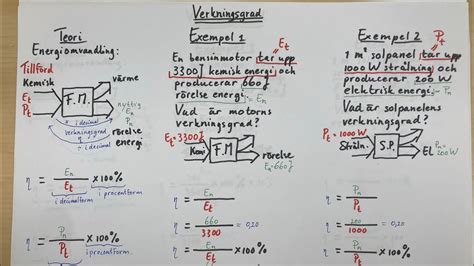 Verkningsgrad
Teori
Energiomvandling:
Tillförd
Kemisk
Et
Pt
F.M.
värme
nyttig
En
Pn
rörelse
energi
η i decimal
verkningsgrad
η i decimal
η = En / Et × 100%
i decimalform
i procentform
η = Pn / Pt × 100%
i procentform
Exempel 1
Et
En bensinmotor tar upp
3300 J kemisk energi och
producerar 660 J
rörelse energi.
Vad är motorns
verkningsgrad?
Et = 3300 J
Kemi
F.M
rörelse
En = 660 J
η = En / Et
η = 660 / 3300 = 0,20
η = × 100%
Exempel 2
Pt
1 m² solpanel tar upp
1000 W strålning och
producerar 200 W
elektrisk energi. Pn
Vad är solpanelens
verkningsgrad?
Pt = 1000 W
Stråln.
S.P.
El
Pn = 200 W
η = Pn / Pt
η = 200 / 1000 = 0,20
η = × 100%